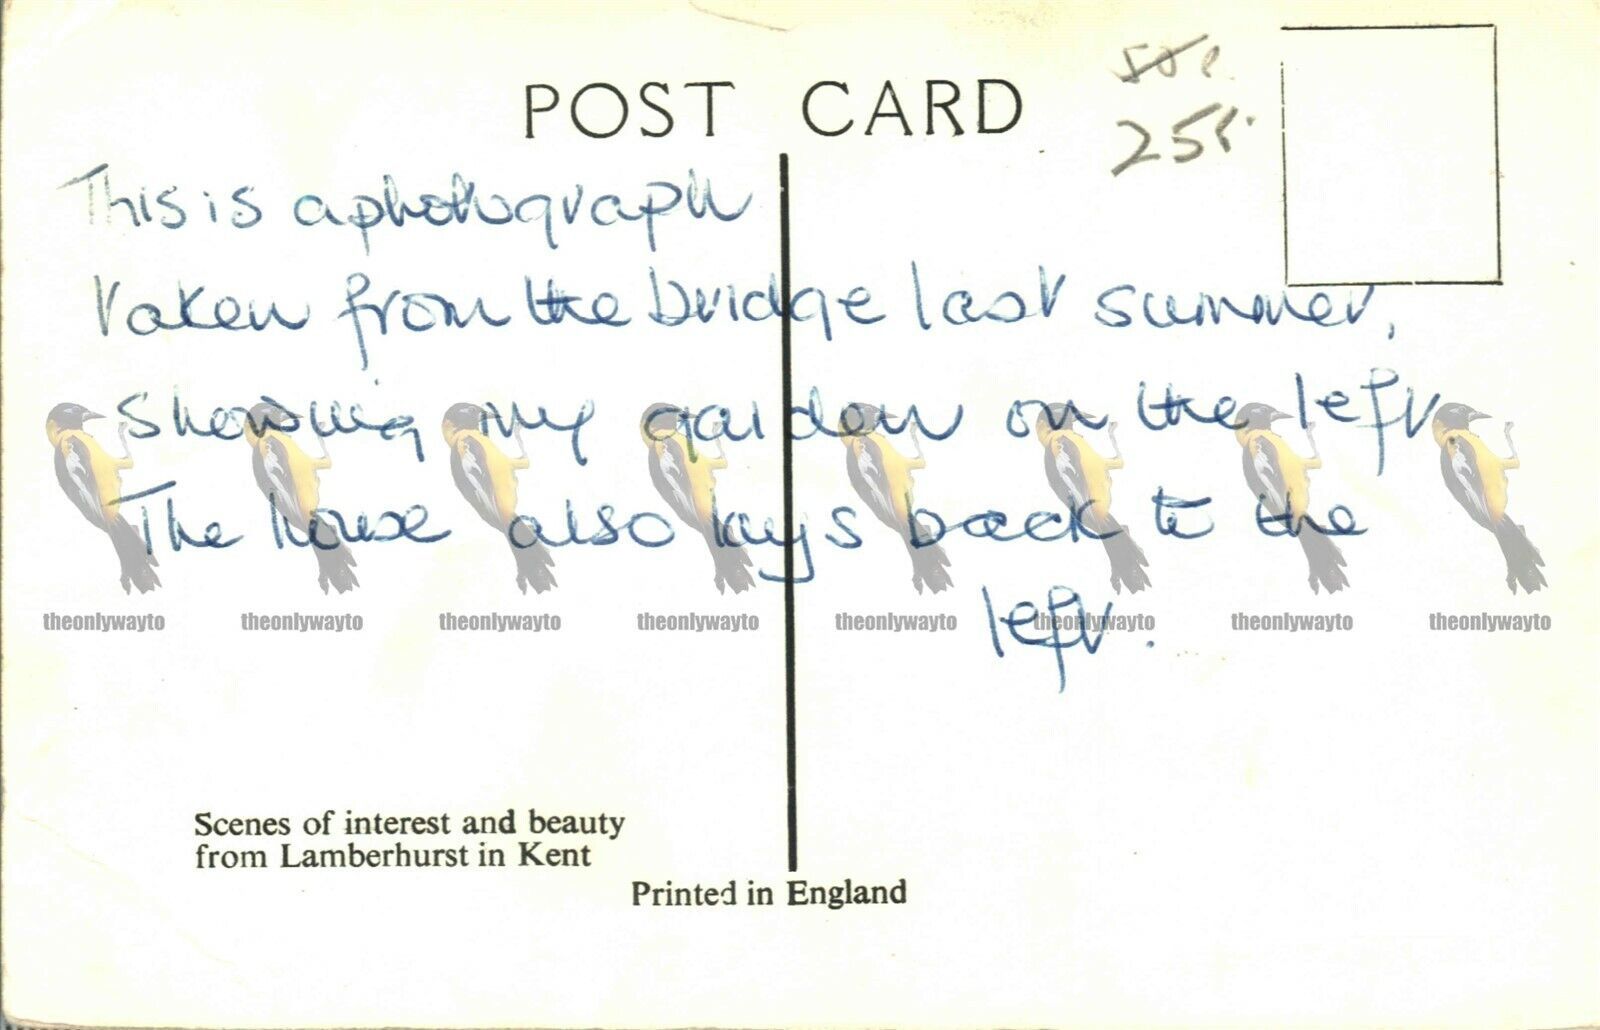 POST CARD
50p
25p.
This is a photograph
taken from the bridge last summer,
showing my garden on the left.
The house also lays back to the
left.
theonlywayto theonlywayto theonlywayto theonlywayto theonlywayto theonlywayto theonlywayto theonlywayto
Scenes of interest and beauty
from Lamberhurst in Kent
Printed in England